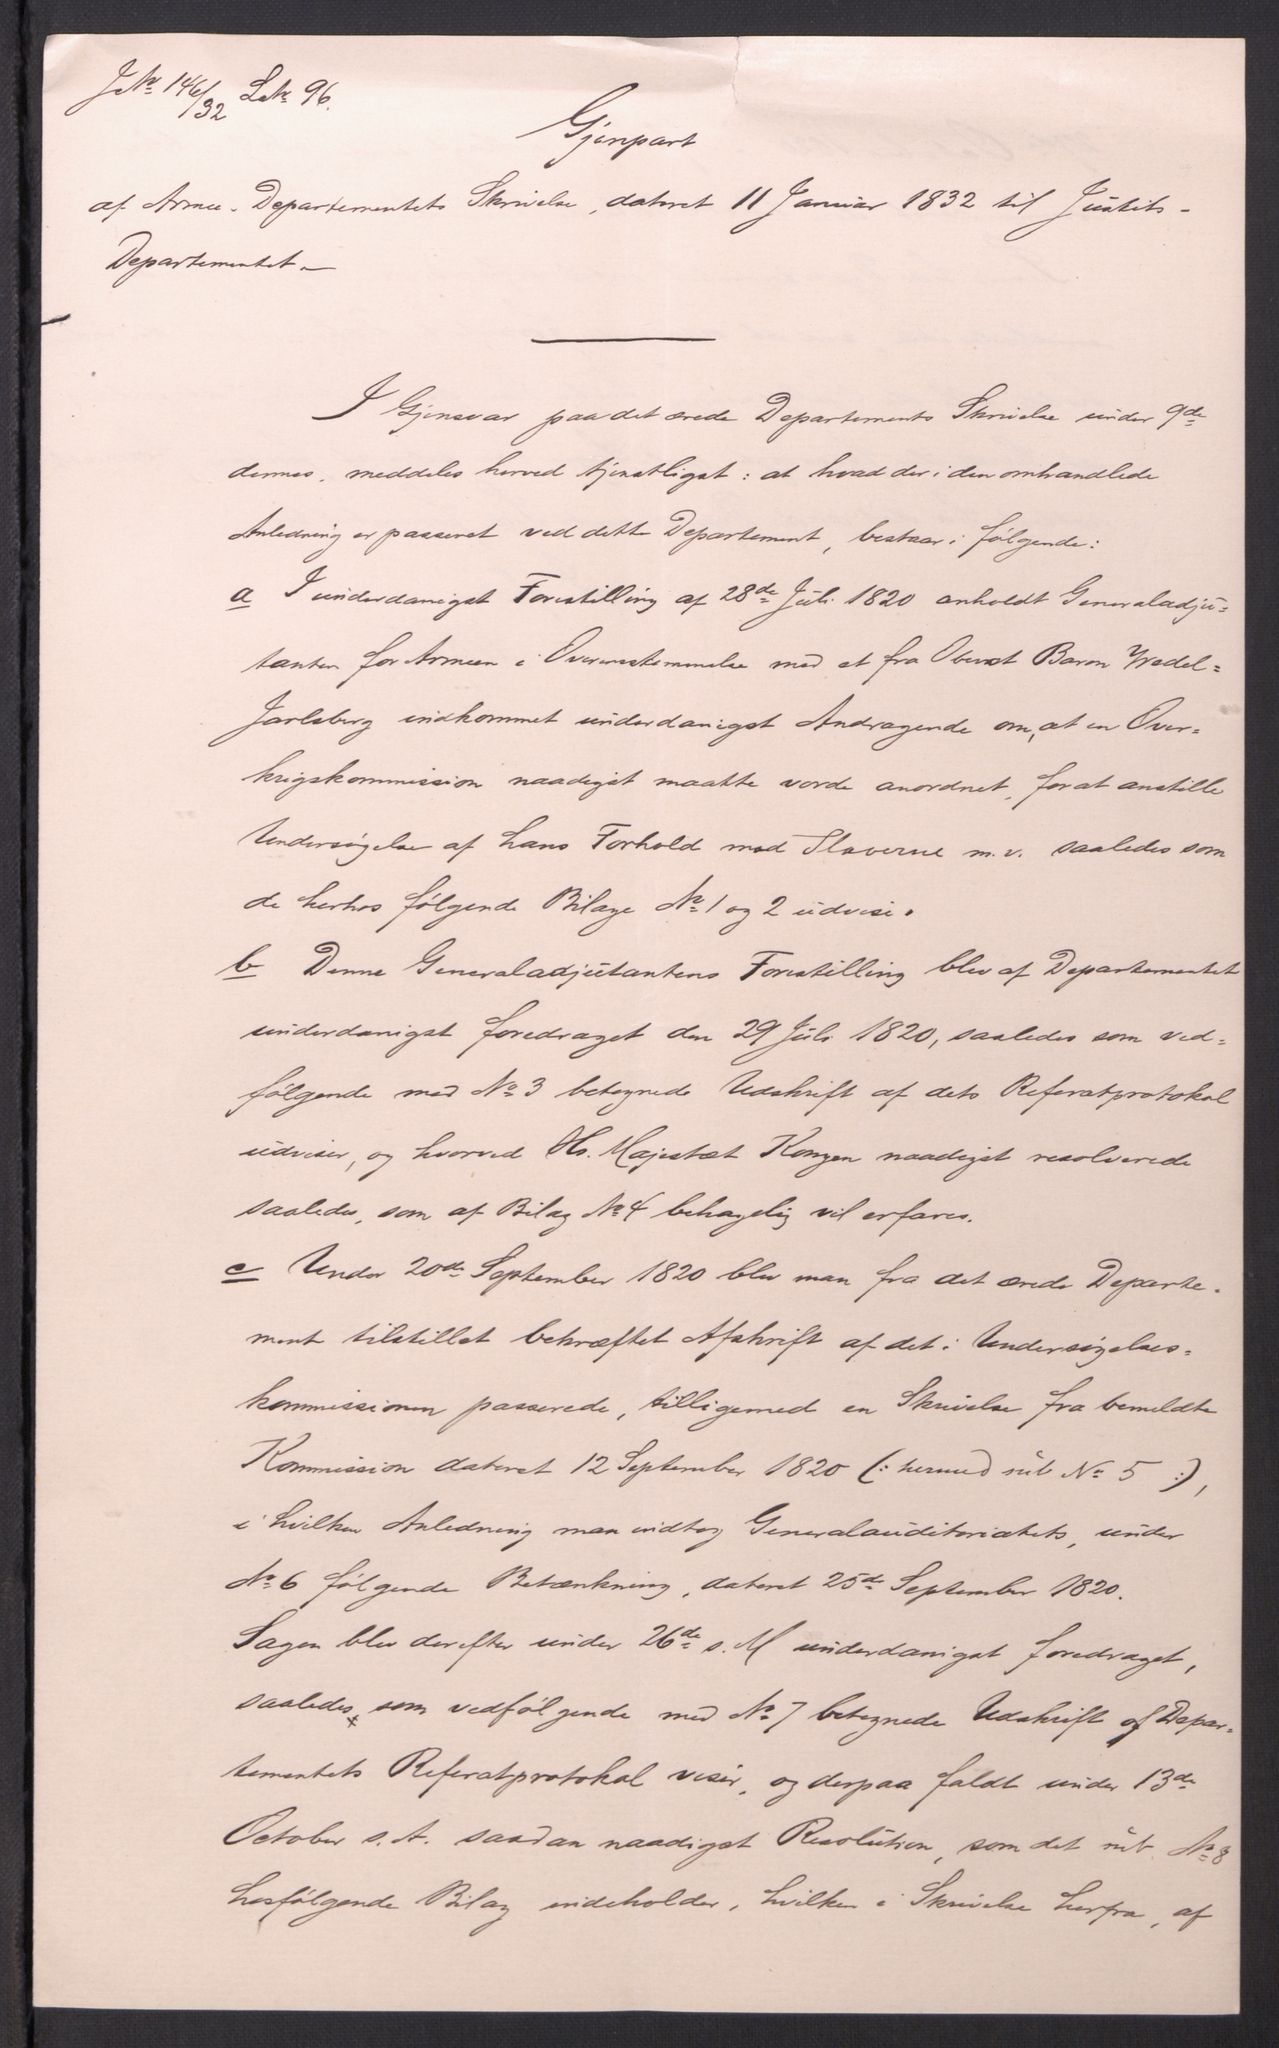 J.№ 146/32 L№ 96.
Gjenpart
af Armee-Departementets Skrivelse, dateret 11 Januar 1832 til Justits-
Departementet.
I Gjensvar paa det ærede Departements Skrivelse under 9de
dennes, meddeles herved tjenstligst: at hvad der i den omhandlede
Anledning er passeret ved dette Departement, bestaar i følgende:
a I underdanigst Forestilling af 28de Juli 1820 anholdt Generaladju-
tanten for Armeen i Overensstemmelse med et fra Oberst Baron Wedel-
Jarlsberg indkommet underdanigst Andragende om, at en Over-
krigskommission naadigst maatte vorde anordnet, for at anstille
Undersøgelse af hans Forhold mod Slaverne m.v. saaledes som
de herhos følgende Bilage № 1 og 2 udvise.
b Denne Generaladjutantens Forestilling blev af Departementet
underdanigst foredraget den 29 Juli 1820, saaledes som ved-
følgende med № 3 betegnede Udskrift af dets Referatprotokol
udviser, og hvorved Hs. Majestæt Kongen naadigst resolverede
saaledes, som af Bilag № 4 behagelig vil erfares.
c Under 20de September 1820 blev man fra det ærede Departe-
ment tilstillet bekræftet Afskrift af det i Undersøgelses-
kommissionen passerede, tilligemed en Skrivelse fra bemeldte
Kommission dateret 12 September 1820 (: hermed sub № 5 :),
i hvilken Anledning man indtog Generalauditoriatets, under
№ 6 følgende Betænkning, dateret 25de September 1820.
Sagen blev derefter under 26de s. M underdanigst foredraget,
saaledes, som vedfølgende med № 7 betegnede Udskrift af Depar-
tementets Referatprotokol viser, og derpaa faldt under 13de
October s. A. saadan naadigst Resolution, som det sub № 8
hosfølgende Bilag indeholder, hvilken i Skrivelse herfra, af